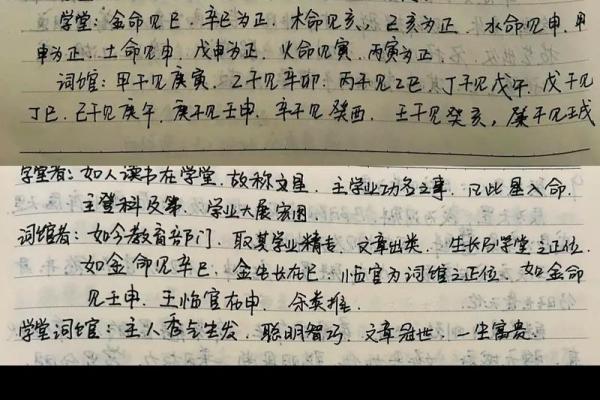 学堂：金命见巳，辛巳为正，木命见亥，己亥为正，水命见申，甲
申为正，土命见申，戊申为正，火命见寅，丙寅为正
词馆：甲干见庚寅，乙干见辛卯，丙干见乙巳，丁干见戊午，戊干见
丁巳，己干见庚午，庚干见壬申，辛干见癸酉，壬干见癸亥，癸干见壬戌
学堂者：如人读书在学堂，故称文星，主学业功名之事，凡此星入命，
主登科及第，学业大展宏图
词馆者：如今教育部门，取其学业精专，文章出类，生长乃学堂之正位，
如金命见辛巳，金生长在巳，临官为词馆之正位，如金命
见壬申，壬临官在申，余类推
学堂词馆：主人秀气生发，聪明智巧，文章冠世，一生富贵